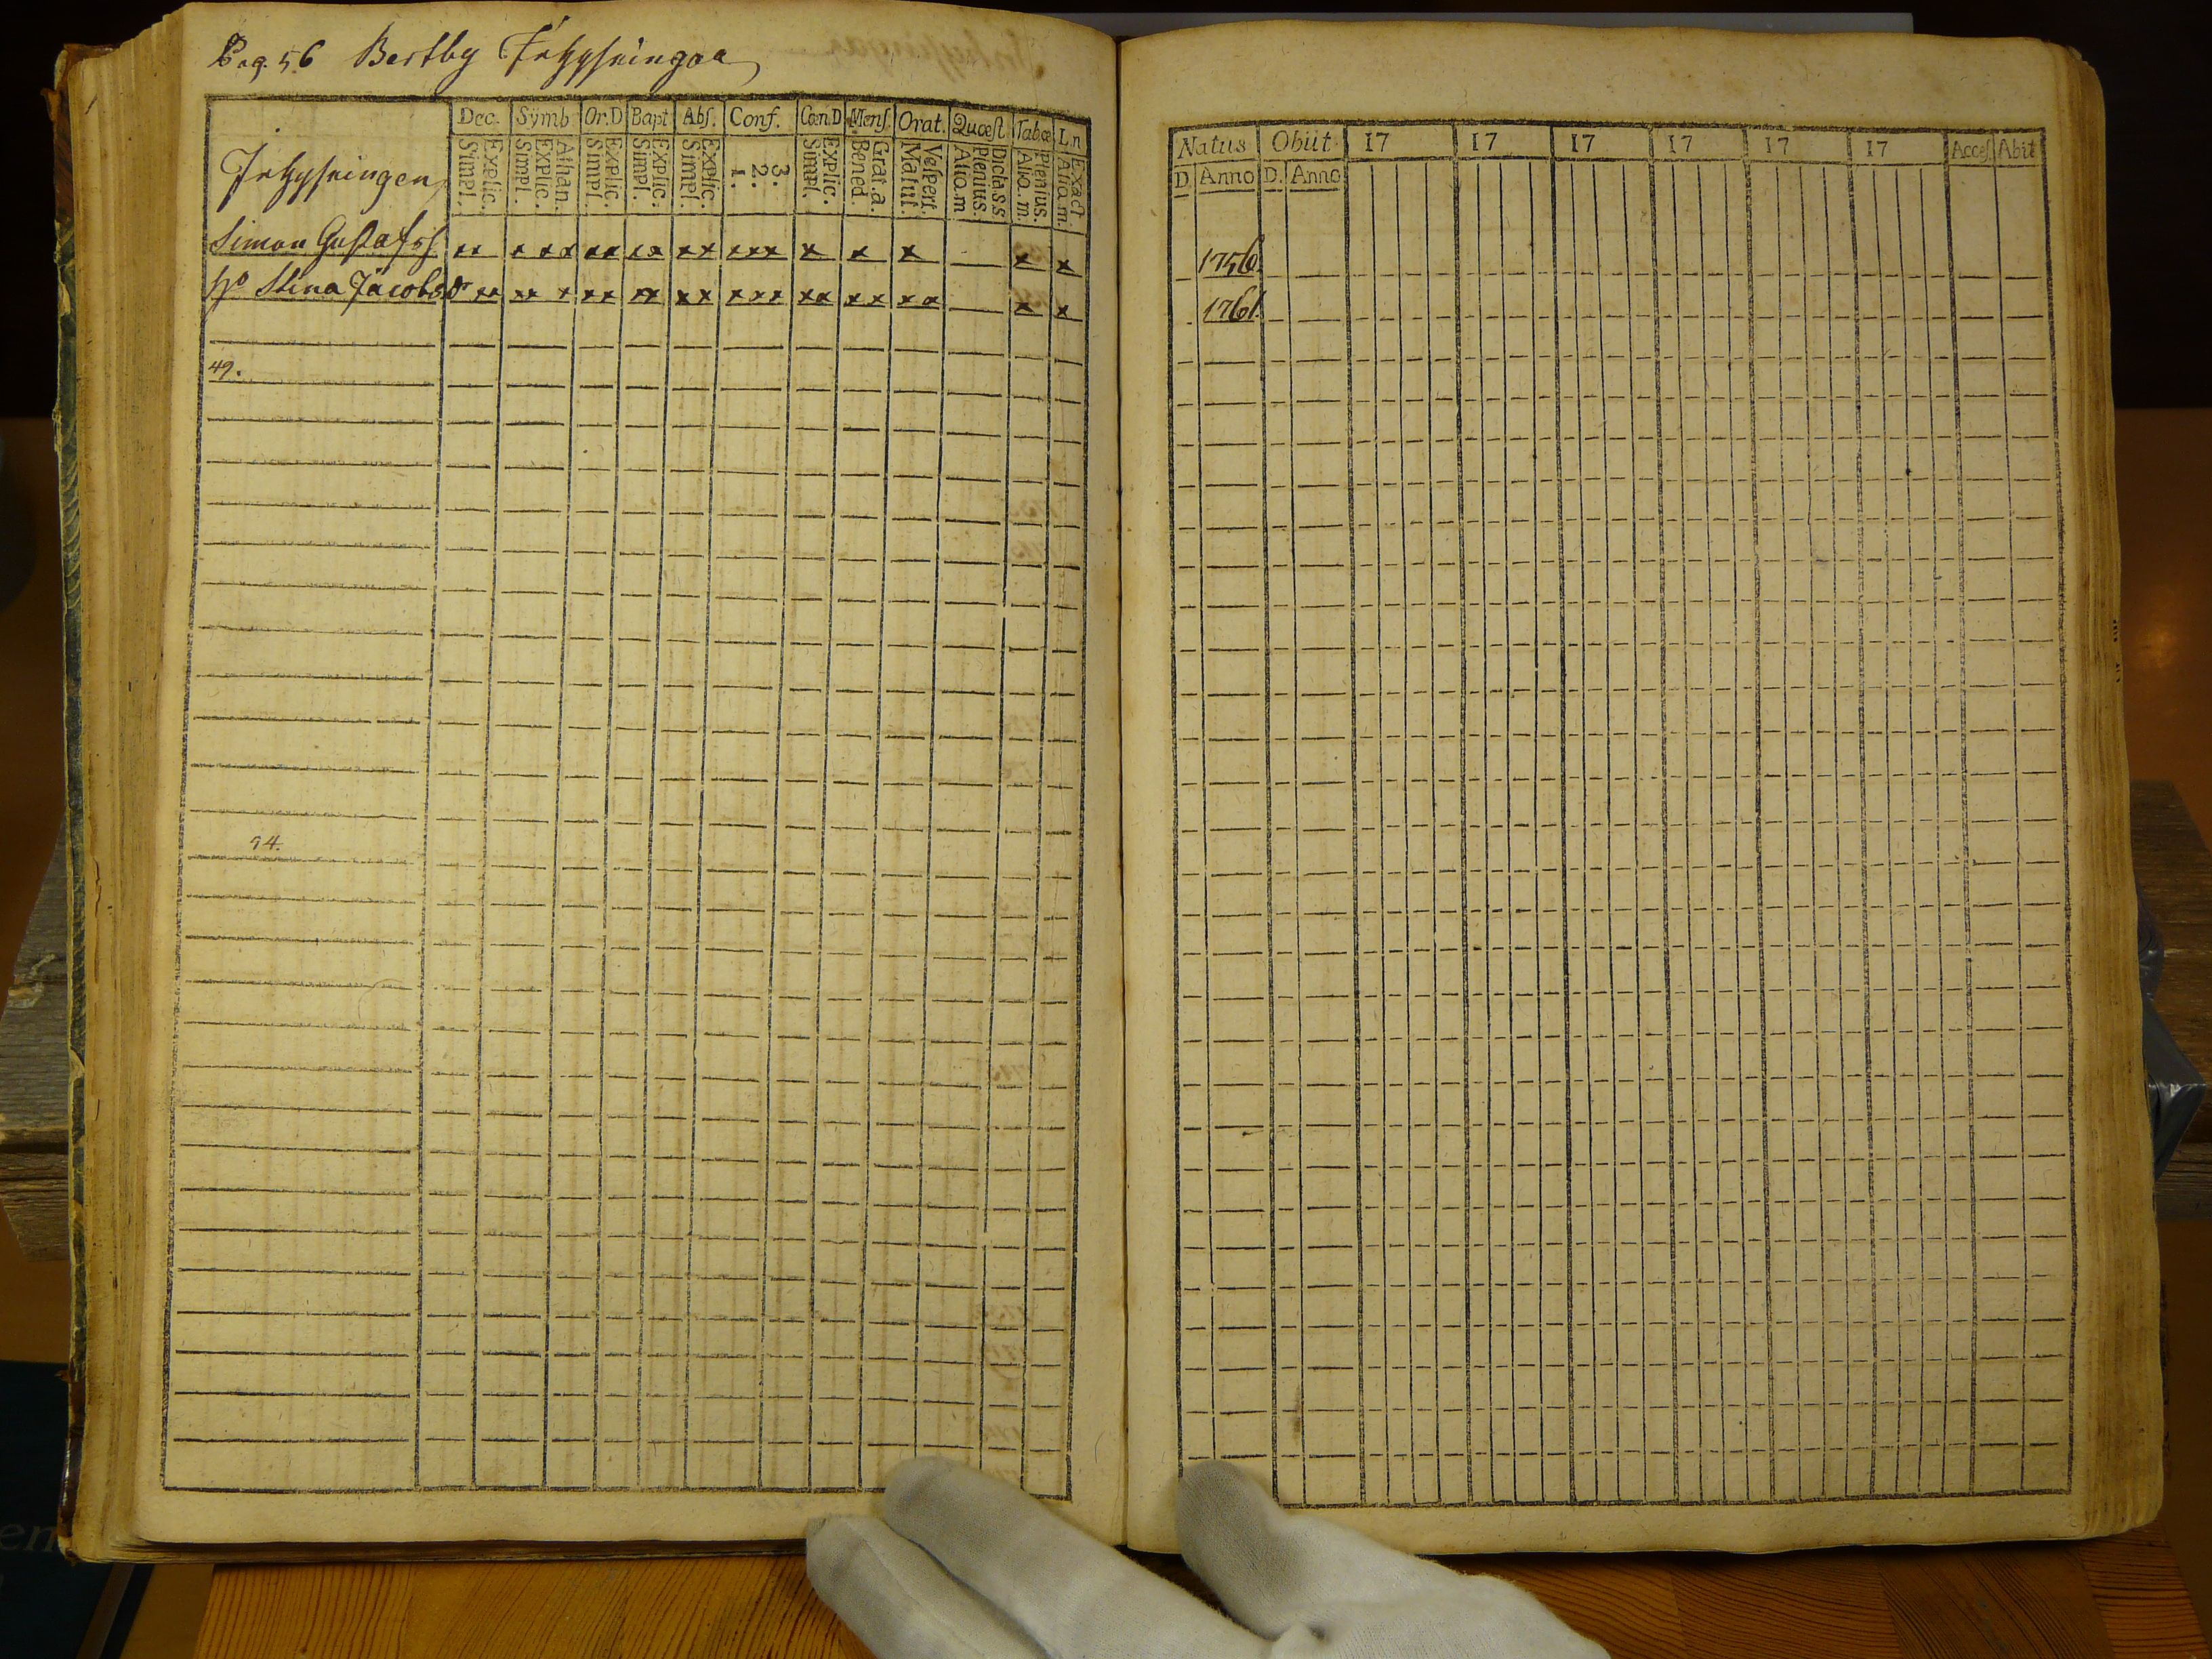 Pag. 56 Bertby Inhysningar
Dec. Symb. Or.D Bapt. Abs. Conf. Cœn.D Mens. Orat. Quœst. Tabœ L.n
Explic. Simpl. Athan. Explic. Simpl. Explic. Simpl. Explic. Simpl. Explic. Simpl. 3. 2. 1. Explic. Simpl. Grat.a. Bened. Vespert. Matut. Dicta.s.s. Plenius. Alio.m. Plenius. Alio.m. Exact Alio.m.
Inhysningen
Simon Gustafss x x x x x x x x x x x x x x x x x x x x
ho Stina Jacobsdr x x x x x x x x x x x x x x x x x x x x x x
49.
54.
Natus Obiit 17 17 17 17 17 17 Acces. Abit
D. Anno D. Anno
1756.
1761.